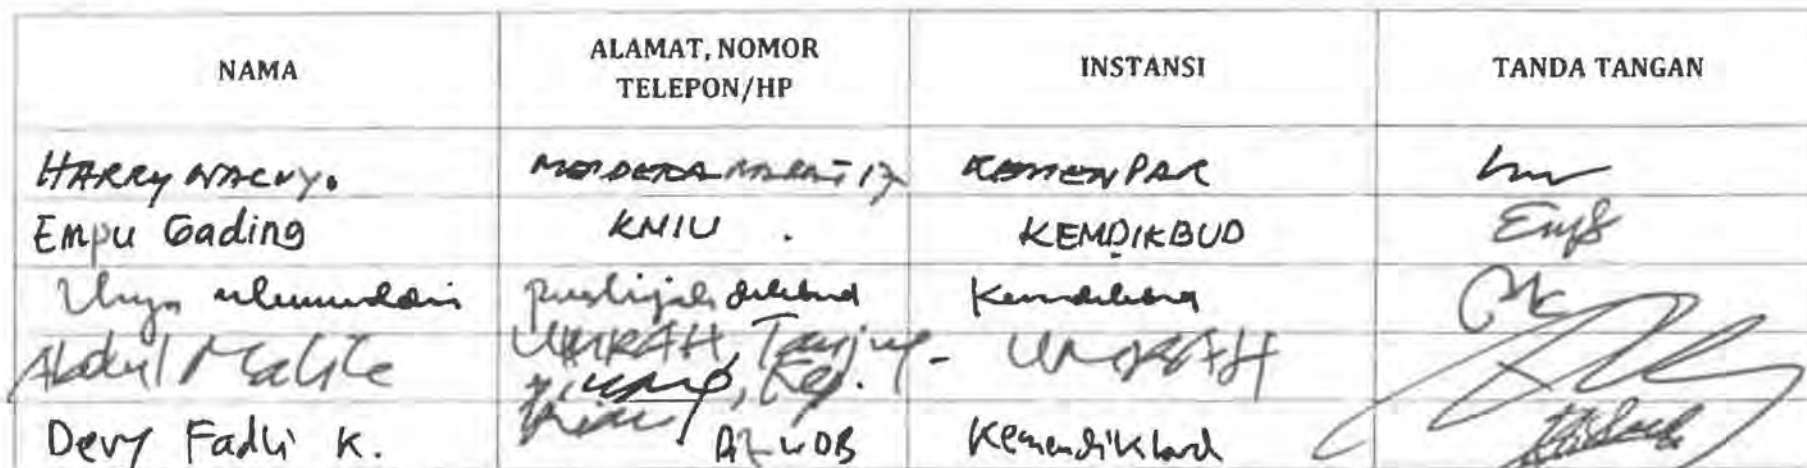 NAMA
ALAMAT, NOMOR
TELEPON/HP
INSTANSI
TANDA TANGAN
HARRY WALUYO. MERDEKA BARAT 17 KEMENPAR
Empu Gading KNIU . KEMDIKBUD
puslitjak dikbud Kemdikbud
Abdul Malik UMRAH, Tanjung- UMRAH
pinang, Kep.
Riau
Devy Fadli K. Kemendikbud